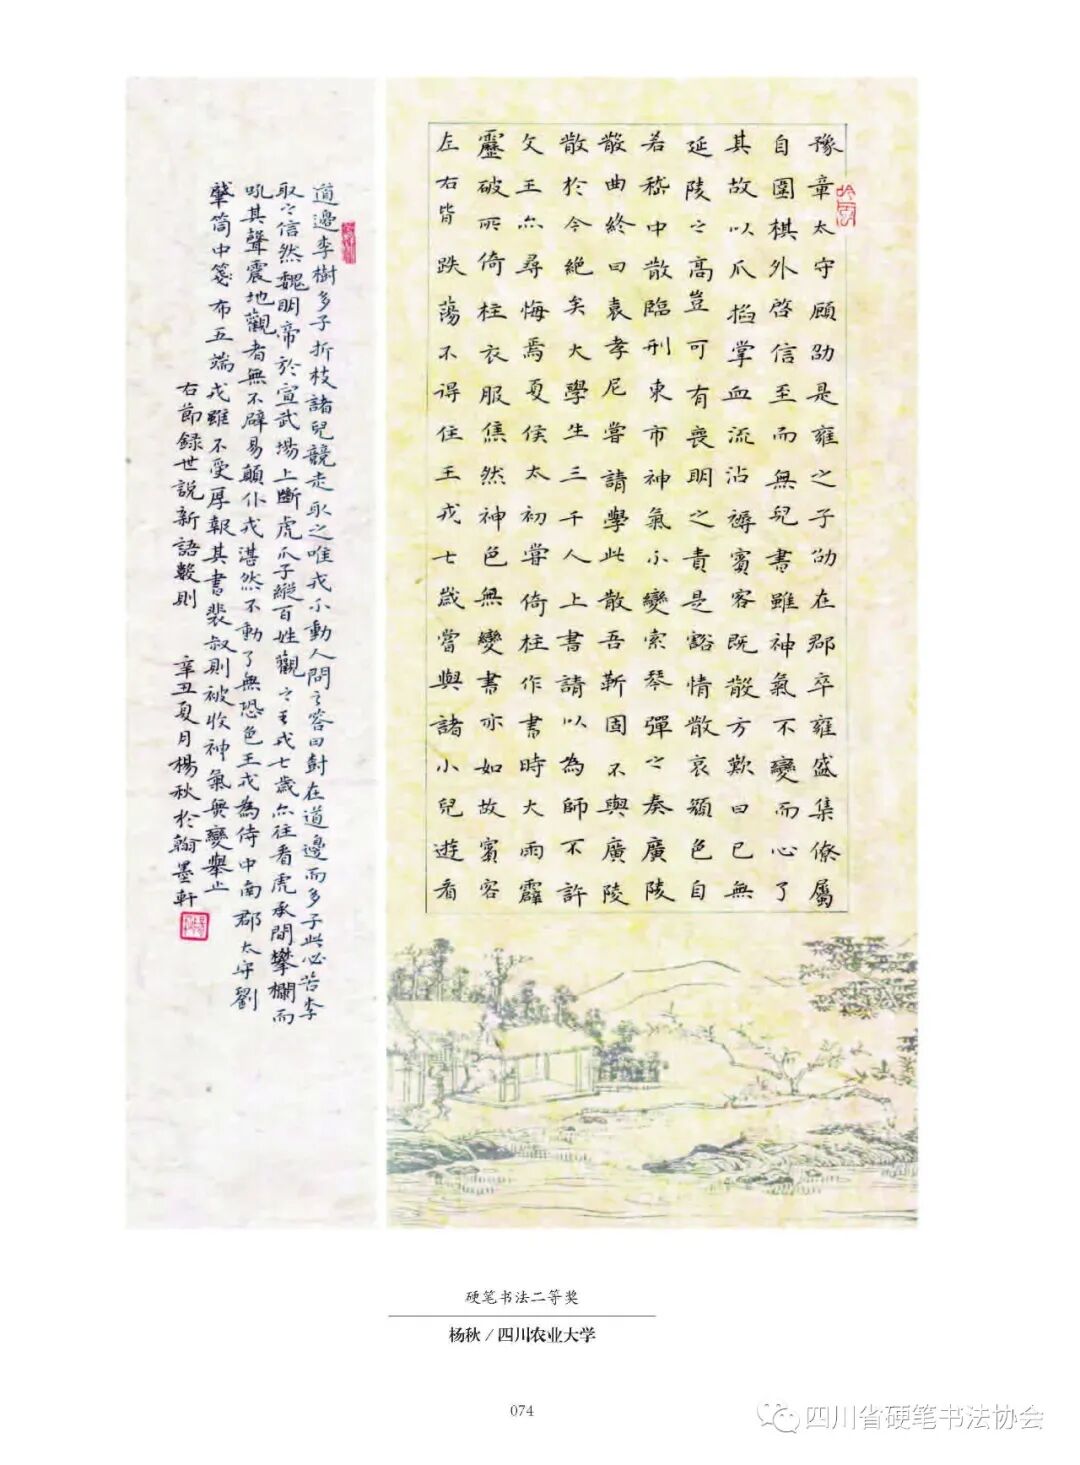 豫章太守顧劭是雍之子劭在郡卒雍盛集僚屬
自圍棋外啓信至而無兒書雖神氣不變而心了
其故以爪掐掌血流沾褥賓客既散方歎曰已無
延陵之高豈可有喪明之責是豁情散哀顏色自
若嵇中散臨刑東市神氣不變索琴彈之奏廣陵
散曲終曰袁孝尼嘗請學此散吾靳固不與廣陵
散於今絕矣大學生三千人上書請以為師不許
文王亦尋悔焉夏侯太初嘗倚柱作書時大雨霹
靂破所倚柱衣服焦然神色無變書亦如故賓客
左右皆跌蕩不得住王戎七歲嘗與諸小兒遊看
道邊李樹多子折枝諸兒競走取之唯戎不動人問之答曰樹在道邊而多子此必苦李
取之信然魏明帝於宣武場上斷虎爪牙縱百姓觀之王戎七歲亦往看虎承間攀欄而
吼其聲震地觀者無不辟易顛仆戎湛然不動了無恐色王戎為侍中南郡太守劉
肇筒中箋布五端戎雖不受厚報其書裴叔則被收神氣無變舉止
右節録世說新語數則 辛丑夏月楊秋於翰墨軒
硬笔书法二等奖
杨秋／四川农业大学
074
四川省硬笔书法协会